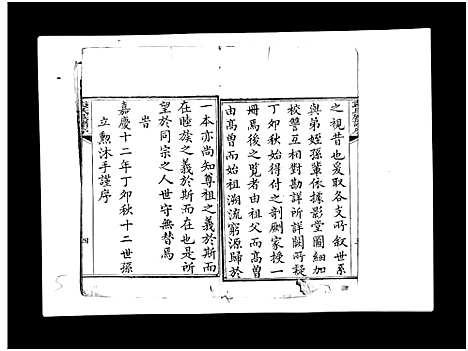 之視昔也爰取各支所叙世系
與弟姪孫輩依據影堂圖細加
校讐互相對勘詳所詳闕所疑
丁卯秋始得付之剞劂家授一
册焉後之覧者由祖父而高曾
由高曾而始祖溯流窮源歸於
一本亦尚知尊祖之義於斯而
在睦族之義於斯而在也是所
望於同宗之人世守無替焉
旹
嘉慶十二年丁卯秋十二世孫
立勲沐手謹序
四
5